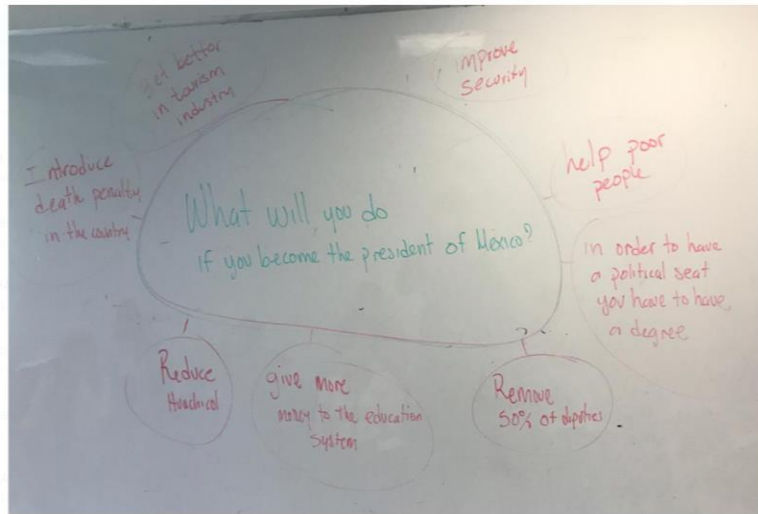 What will you do
if you become the president of México?
Get better
in tourism
industry
mprove
security
help poor
people
in order to have
a political seat
you have to have
a degree
Remove
50% of diputies
give more
money to the education
system
Reduce
Huachicol
Introduce
death penalty
in the country